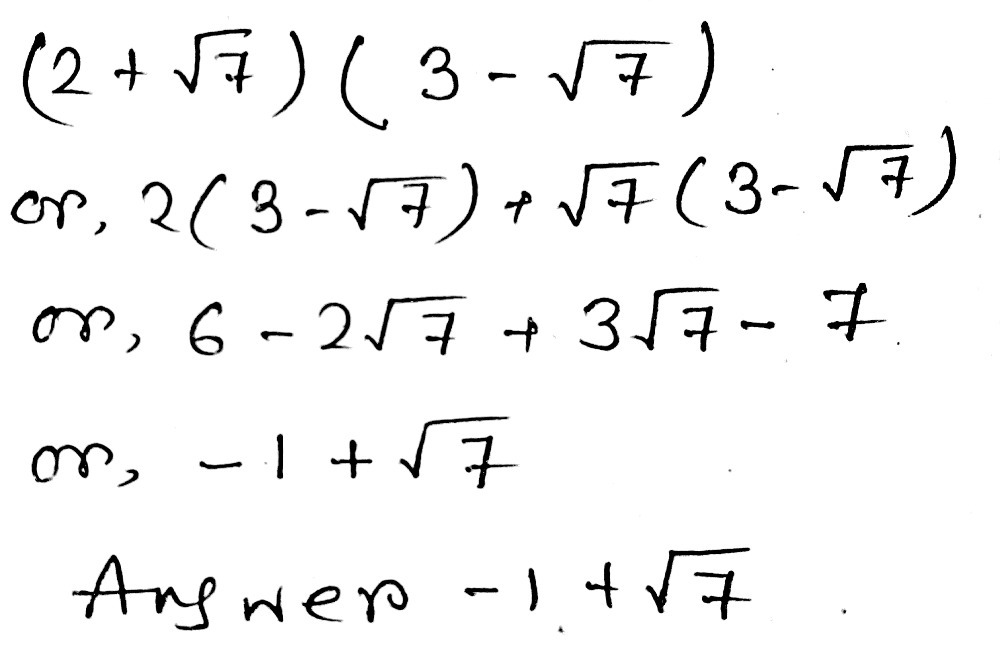 (2 + √7) (3 - √7)
or, 2(3 - √7) + √7(3 - √7)
or, 6 - 2√7 + 3√7 - 7
or, -1 + √7
Answer -1 + √7